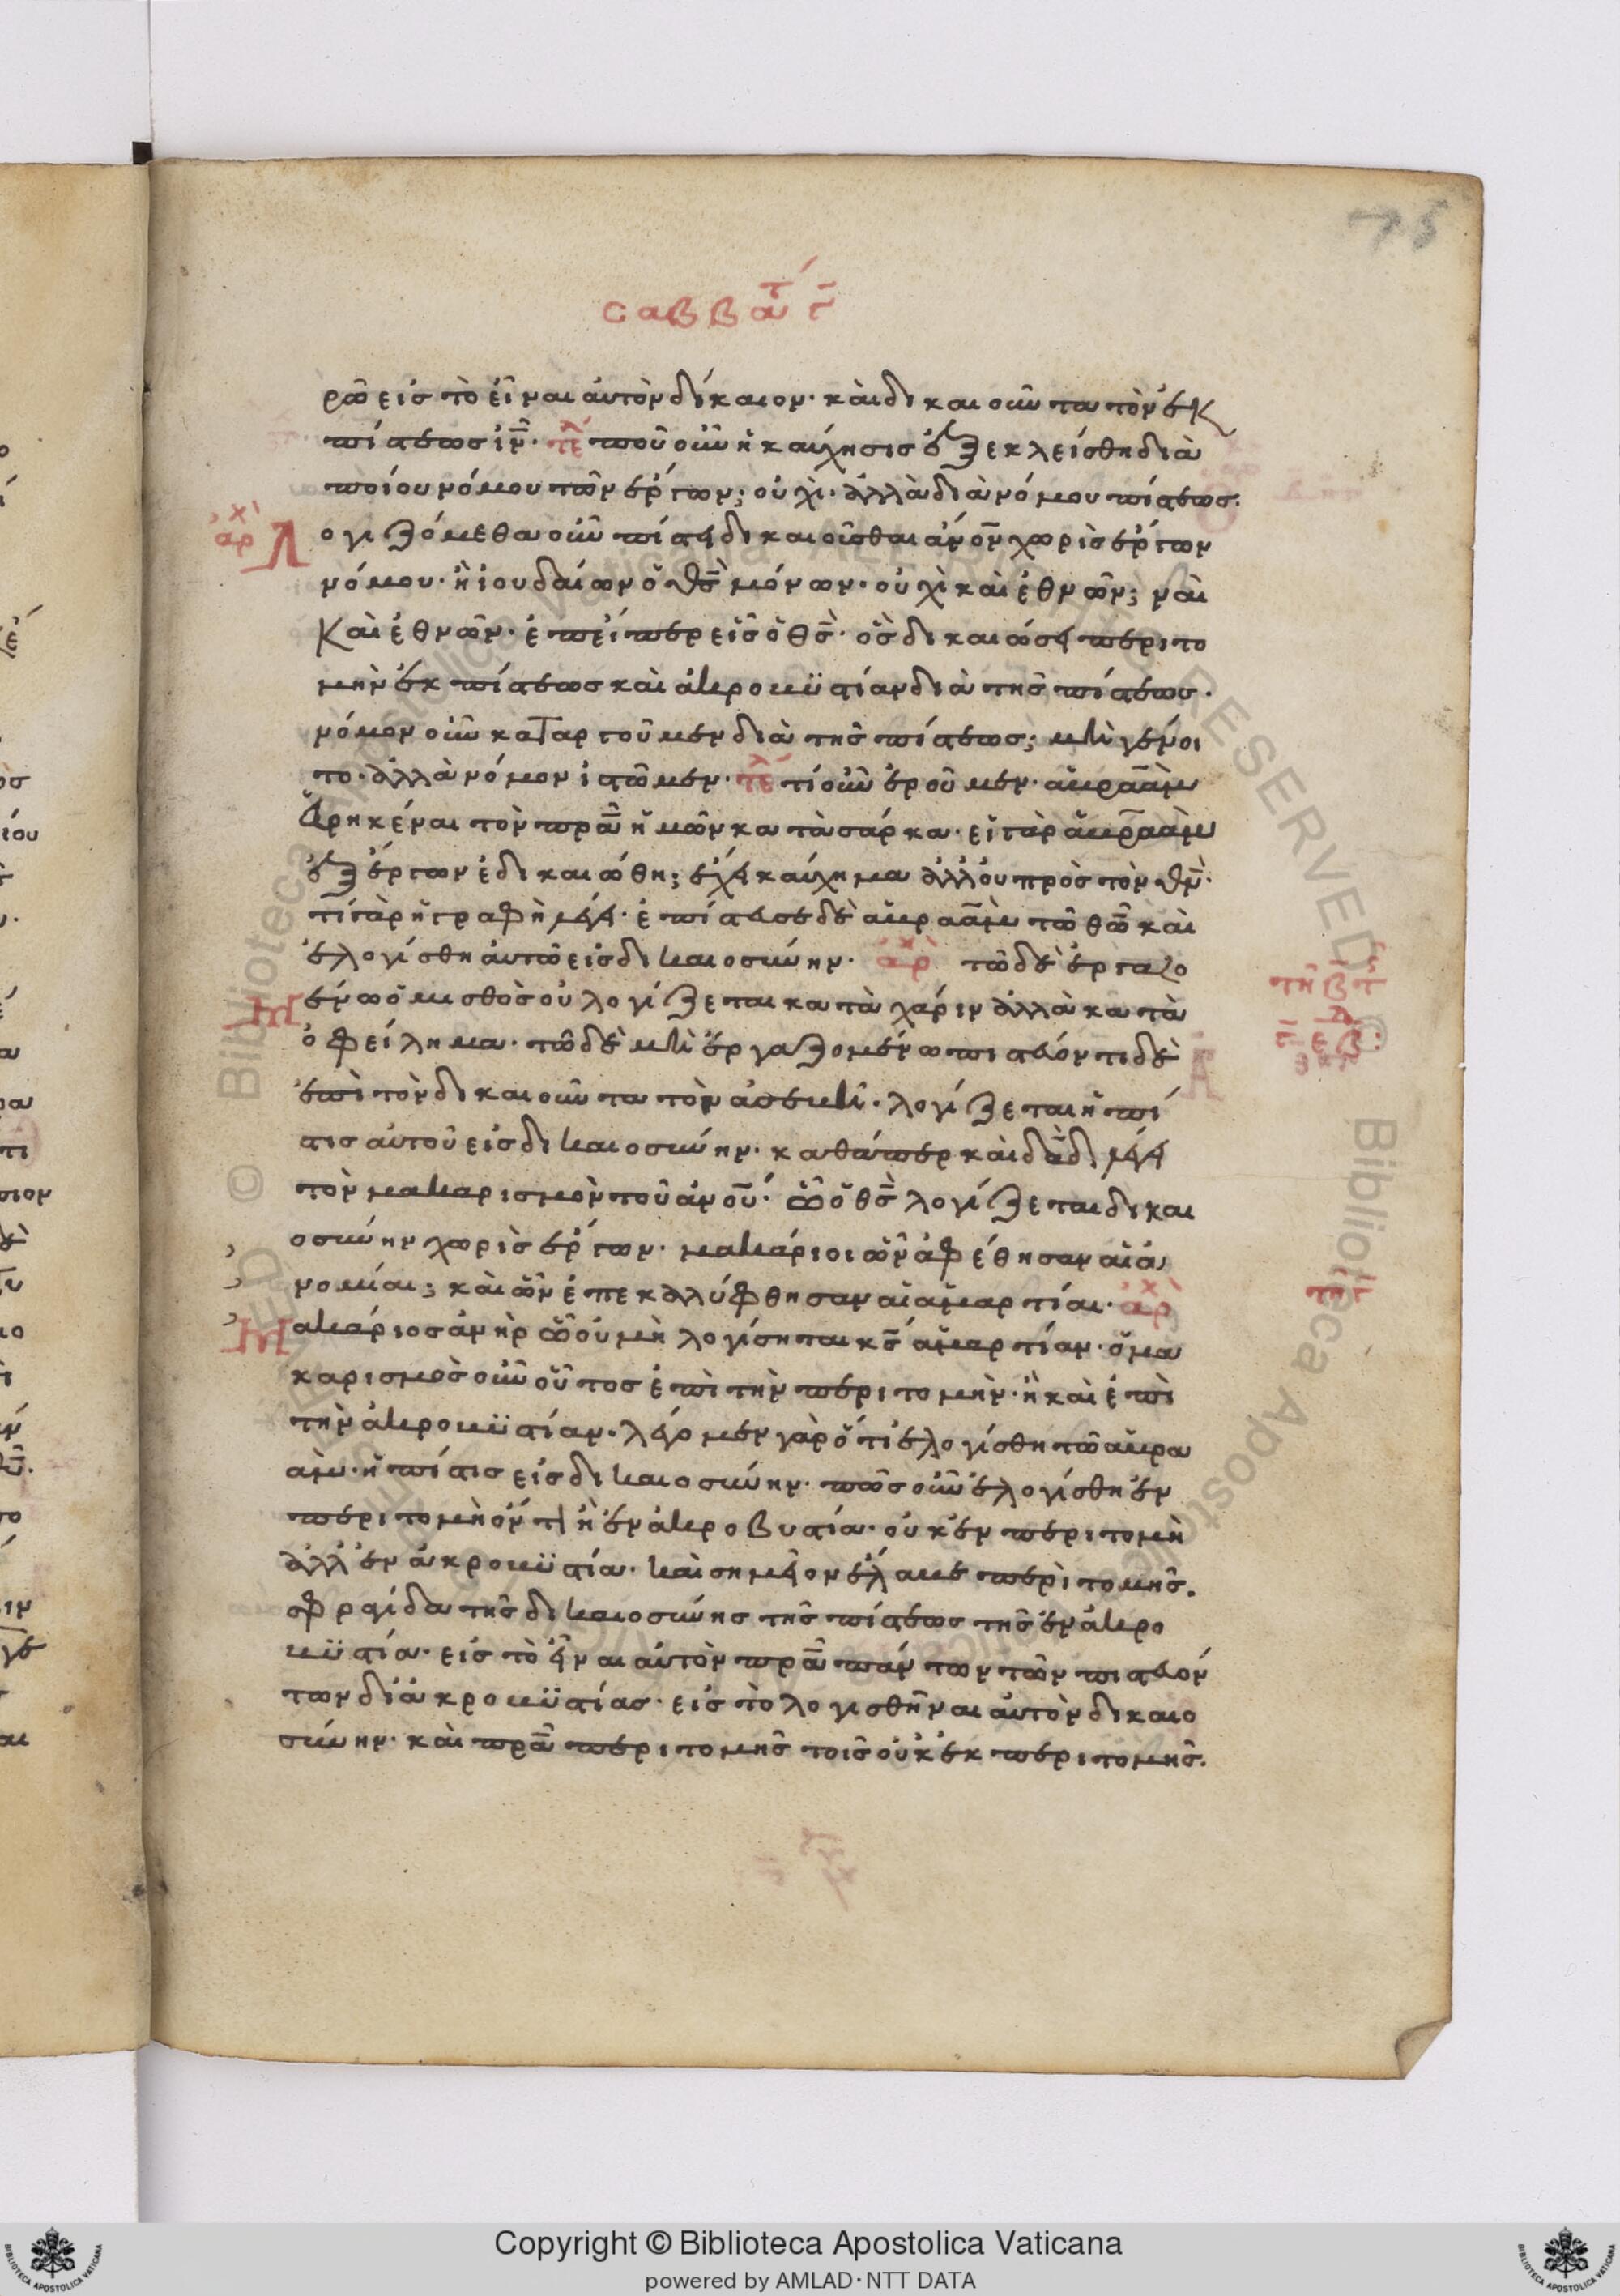 75
σαββατ γ
ρῶ εἰς τὸ εἶναι αὐτὸν δίκαιον· καὶ δικαιοῦντα τὸν ἐκ
πίστεως ἰῦ· τελ ποῦ οὖν ἡ καύχησις ἐξεκλείσθη διὰ
ποίου νόμου τῶν ἔργων; οὐχὶ· ἀλλὰ διὰ νόμου πίστεως.
αρχ Λογιζόμεθα οὖν πίστει δικαιοῦσθαι ἄνον χωρὶς ἔργων
νόμου· ἢ ἰουδαίων ὁ θς μόνων· οὐχὶ καὶ ἐθνῶν; ναὶ
καὶ ἐθνῶν· ἐπείπερ εἷς ὁ θς· ὃς δικαιώσει περιτο
μὴν ἐκ πίστεως καὶ ἀκροβυστίαν διὰ τῆς πίστεως.
νόμον οὖν καταργοῦμεν διὰ τῆς πίστεως; μὴ γένοι
το· ἀλλὰ νόμον ἱστῶμεν· τελ τί οὖν ἐροῦμεν· ἀβραὰμ
εὑρηκέναι τὸν πρα ἡμῶν κατὰ σάρκα· εἰ γὰρ ἀβραὰμ
ἐξ ἔργων ἐδικαιώθη; ἔχει καύχημα ἀλλ' οὐ πρὸς τὸν θν·
τί γὰρ ἡ γραφὴ λέγει· ἐπίστευσε δὲ ἀβραὰμ τῶ θω καὶ
ἐλογίσθη αὐτῶ εἰς δικαιοσύνην· αρχ τῶ δὲ ἐργαζο
μένω ὁ μισθὸς οὐ λογίζεται κατὰ χάριν ἀλλὰ κατὰ
τη β τ
ὀφείλημα· τῶ δὲ μὴ ἐργαζομένω πιστεύοντι δὲ
ἐπὶ τὸν δικαιοῦντα τὸν ἀσεβῆ· λογίζεται ἡ πί
στις αὐτοῦ εἰς δικαιοσύνην· καθάπερ καὶ δαδ λέγει
τὸν μακαρισμὸν τοῦ ἀνου· ὧ ὁ θς λογίζεται δικαι
οσύνην χωρὶς ἔργων· μακάριοι ὧν ἀφέθησαν αἱ ἀ
νομίαι; καὶ ὧν ἐπεκαλύφθησαν αἱ ἁμαρτίαι· αρχ
Μακάριος ἀνὴρ ὧ οὐ μὴ λογίσηται κς ἁμαρτίαν· ὁ μα
καρισμὸς οὖν οὗτος ἐπὶ τὴν περιτομὴν· ἢ καὶ ἐπὶ
τὴν ἀκροβυστίαν· λέγομεν γὰρ ὅτι ἐλογίσθη τῶ ἀβρα
ὰμ· ἡ πίστις εἰς δικαιοσύνην· πῶς οὖν ἐλογίσθη ἐν
περιτομὴ ὄντι ἢ ἐν ἀκροβυστία· οὐκ ἐν περιτομὴ
ἀλλ' ἐν ἀκροβυστία· καὶ σημεῖον ἔλαβε περὶτομῆς.
σφραγίδα τῆς δικαιοσύνης τῆς πίστεως τῆς ἐν ἀκρο
βυστία· εἰς τὸ εἶναι αὐτὸν πρα πάντων τῶν πιστευόν
των δι' ἀκροβυστίας· εἰς τὸ λογισθῆναι αὐτὸν δικαιο
σύνην· καὶ πρα περιτομῆς τοῖς οὐκ ἐκ περιτομῆς.
Copyright © Biblioteca Apostolica Vaticana
powered by AMLAD·NTT DATA